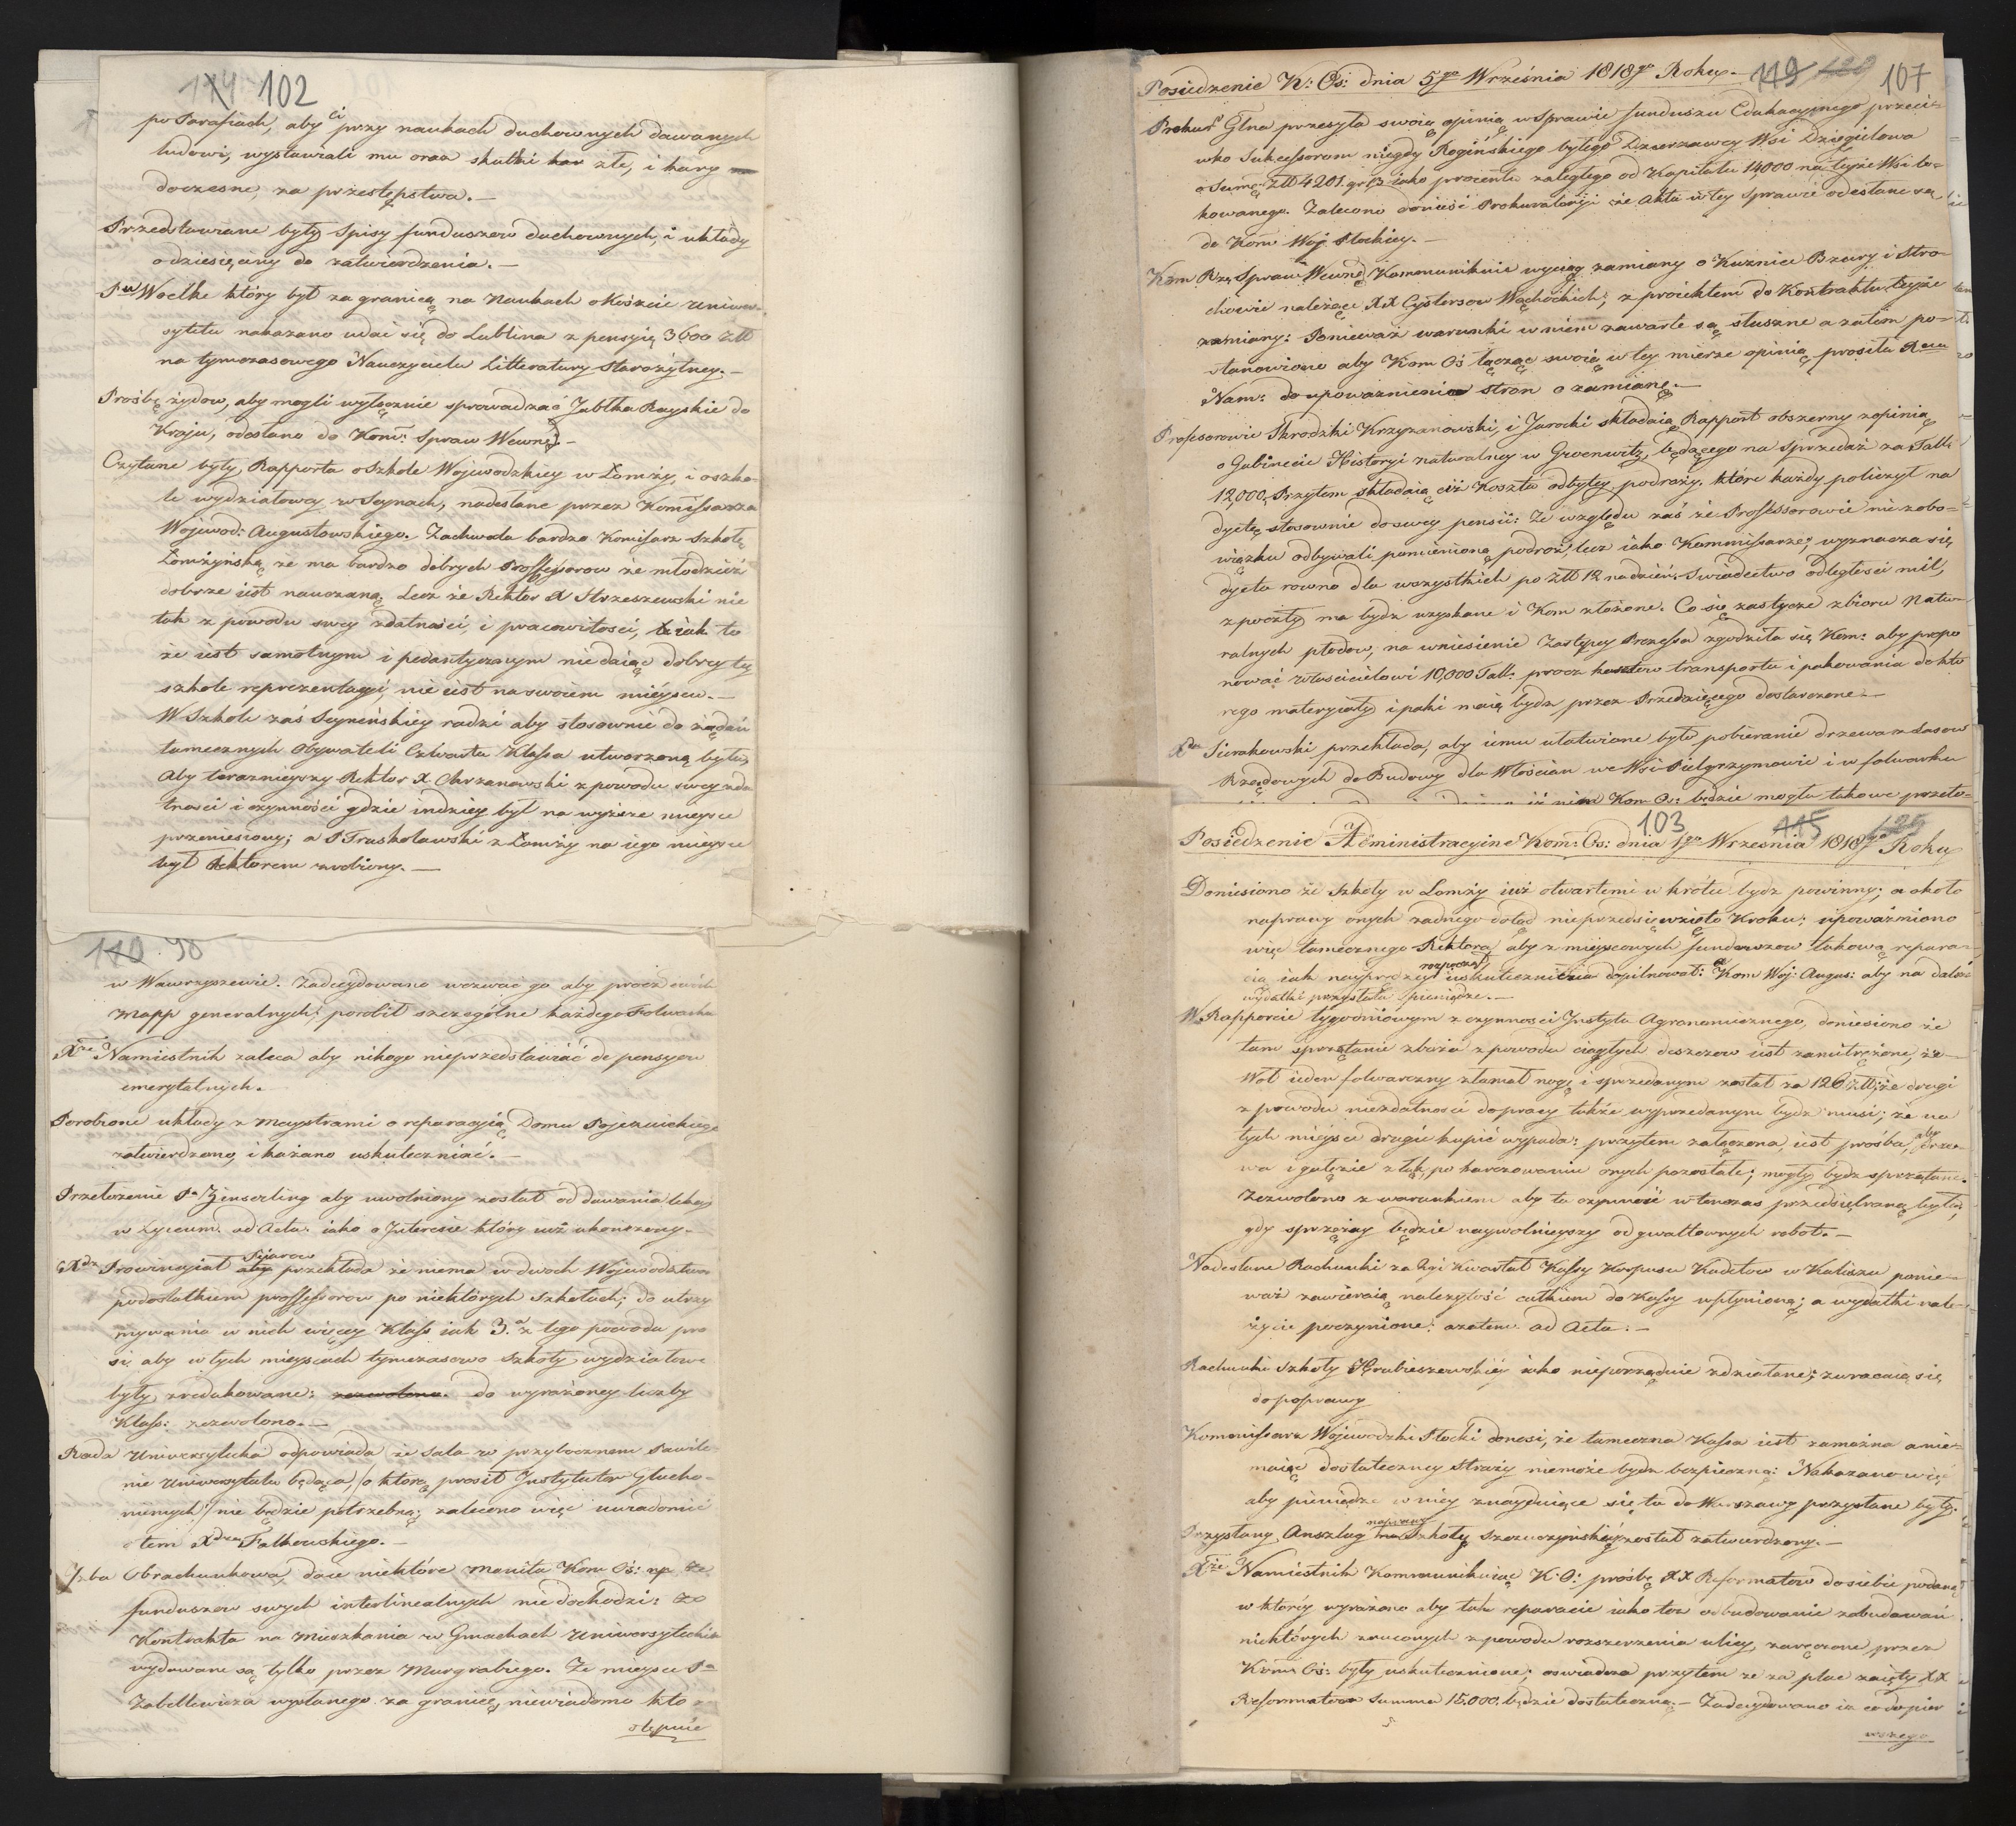 114 102
po Parafiach, aby ci przy naukach duchownych dawanych
ludowi, wystawiali mu oraz skutki kar złe, i kary
doczesne, za przestępstwa. —
Przedstawiane były Spisy funduszow duchownych, i układy
o dziesięciny do zatwierdzenia. —
Pu Woelke który był za granicą na Naukach o Koszcie Uniwer-
sytetu nakazano udać się do Lublina z pensyię 3600 Złł
na tymczasowego Nauczyciela Litteratury Starożytney. —
Prośbę żydow, aby mogli wyłącznie sprowadzać Jabłka Rayskie do
Kraju, odesłano do Kom: Spraw Wewnę. —
Czytane były Rapporta o Szkole Wojewodzkiey w Łomży, i o szko-
le wydziałowey w Seynach, nadesłane przez Kommissarza
Wojewod: Augustowskiego. Zachwala bardzo Komisarz Szkołę
Łomżyńską że ma bardzo dobrych Professorow że młodzież
dobrze iest nauczaną, Lecz że Rektor X Strzeszewski nie
tak z powodu swey zdatności, i pracowitości, iak to
że iest samotnym i pedantycznym nie daiąc dobrey tey
szkole reprezentacyi, nie iest na swoiem mieyscu. —
W Szkole zaś Seyneńskiey radzi aby stosownie do żądań
tamecznych Obywateli Czwarta Klassa utworzoną była,
Aby teraznieyszy Rektor X Chrzanowski z powodu swey zda
tności i czynności gdzie indziey był na wyższe mieysce
przeniesiony; a P Truskolawski z Łomży na iego mieysce
był Rektorem zrobiony. —
110 98
w Wawrzyszewie. Zadecydowano wezwać go aby procz
mapp generalnych, porobił szczególne każdego Folwarku
Xże Namiestnik zaleca aby nikogo nieprzedstawiać do pensyow
emerytalnych.
Porobione układy z Maystrami o reparacyią Domu Pojezuickiego
zatwierdzono, i kazano uskuteczniać. —
Przełożenie Pa Zinserling aby uwolniony został od dawania lekcyi
w Lyceum. ad Acta. iako o Interesie który iuż ukończony. —
Xdz Prowincyiał Pijarow przekłada że niema w dwoch Wojewodztwa
podostatkiem professorow po niektórych szkołach; do utrzy
mywania w nich więcey Klass iak 3. z tego powodu pro
si aby w tych mieyscach tymczasowo szkoły wydziałowe
były zredukowane: zezwolono. do wyrażoney liczby
Klass: zezwolono. —
Rada Uniwersytecka odpowiada że sala w przybocznem Pawilo-
nie Uniwersytetu będąca, (o którą prosił Instytutor Głucho-
niemych) nie będzie potrzebną; zalecono więc uwiadomić
o tem Xdza Falkowskiego. —
Izba Obrachunkowa, daie niektóre Monita Kom: Oś: np Że
funduszow swych interlinealnych nie dochodzi: Że
Kontrakta na mieszkania w Gmachach Uniwersyteckich
wydawane są tylko przez Murgrabiego. Że mieysce Pa
Zabellewicza wysłanego za granicę, niewiadomo kto
stępuie
Posiedzenie K: Oś: dnia 5go Września 1818go Roku. — 119 120 107
Prokurt Glna przesyła swoią opinią w Sprawie funduszu Edukacyjnego przeci-
wko Sukcessorom niegdy Rogińskiego byłego Dzierżawcy Wsi Dzięgielowa
o Summę Złł 4201. gr 13 iako procentu zaległego od Kapitału 14000 na teyże Wsi lo-
kowanego. Zalecono donieść Prokuratoryi że Akta w tey Sprawie odesłane są
do Kom Woj: Płockiey. —
Kom Rzą: Spraw Wewnę: Kommunikuie wyciąg zamiany o Kuznice Bzury i Stro-
chowie należące XX Cystersow Wąchockich; z proiektem do Kontraktu teyże
zamiany: Ponieważ warunki w niem zawarte są słuszne a zatem po-
stanowiono aby Kom Oś łącząc swoię w tey mierze opinią prosiła Rada
Nam: do upoważnienia stron o zamianę. —
Professorowie Skrodzki Krzyżanowski, i Jarocki składaią Rapport obszerny z opinią
o Gabinecie Historyi naturalney w Groenwitz, będącego na sprzedaż za Talk
12,000. Przytem składaią iuż Koszta odbytey podroży. które każdy policzył na
dyetę stosownie do swey pensii: Ze względu zaś że Professorowie nie z obo-
wiązku odbywali pomienioną podróż, lecz iako Kommissarze; wyznacza się
dyeta rowno dla wszystkich po złł 12 na dzień. Swiadectwo odległości mil,
z poczty ma bydz uzyskane i Kom złożone. Co się zastycze zbioru Natu-
ralnych płodow, na wniesienie Zastępcy Prezessa zgodziła się Kom: aby propo
nować właścicielowi 10,000 Tall: procz kosztow transportu i pakowania do któ
rego materyiały i paki maią bydz przez Przedaiącego dostarczone. —
Xdz Sierakowski przekłada, aby iemu ułatwione było pobieranie drzewa z lasow
Rządowych do Budowy dla Włościan we Wsi Pielgrzymowie i w folwarku
103 115 125
Posiedzenie Administracyine Kom: Oś: dnia 1go Wrzesnia 1818go Roku
Doniesiono że Szkoły w Łomży iuż otwartemi w krótce bydz powinny; a około
naprawy onych żadnego dotąd nieprzedsięwzięto Kroku: upoważniono
więc tamecznego Rektora aby z mieyscowych funduszow takową repara-
cią iak nayprędzey rozpoczął uskutecznienia dopilnował: a Kom Woj: Augus: aby na dalsze
wydatki przysłała pieniądze. —
W Rapporcie tygodniowym z czynnosci Instytu Agronomicznego, doniesiono że
tam sprzątanie zboża z powodu ciągłych deszczow iest zamitrężone, że
Woł ieden folwarczny złamał nogę i sprzedanym został za 126 złł; że drugi
z powodu niezdatności do pracy także wyprzedanym bydz musi; że na
tych mieysce drugie kupić wypada: przytem załączona iest prośba, aby drze-
wa i gałęzie z łąk, po karczowaniu onych pozostałe; mogły bydz sprzątane.
Zezwolono z warunkiem aby ta czynność wtenczas przedsiębraną była,
gdy sprzężay będzie naywolnieyszy od gwałtownych robot. —
Nadesłane Rachunki za 2gi Kwartał Kassy Korpusu Kadetow w Kaliszu ponie-
waż zawieraią należytość całkiem do Kassy wpłynioną; a wydatki nale-
życie poczynione: azatem ad Acta. —
Rachunki Szkoły Hrubieszowskiey iako nieporządnie zdziałane; zwracaią się
do poprawy
Kommissarz Wojewodzki Płocki donosi, że tameczna Kassa iest zamożna a nie-
maiąc dostateczney Straży niemoże bydz bezpieczną: Nakazano więc
aby pieniądze w niey znayduiące się tu do Warszawy przysłane były.
Przysłany Anszlag naprawy Szkoły Szczuczyńskiey został zatwierdzony. —
Xże Namiestnik Kommunikuiąc K: O: prośbę XX Reformatow do siebie podaną
w którey wyrażono aby tak reparacie iako też odbudowanie zabudowań
niektórych zrzuconych z powodu rozszerzenia ulicy, zaręczone przez
Kom: Oś: były uskutecznione; oswiadcza przytem że za plac zaięty XX
Reformatow Summa 15.000. będzie dostateczną. — Zadecydowano iż co do pier
wszego